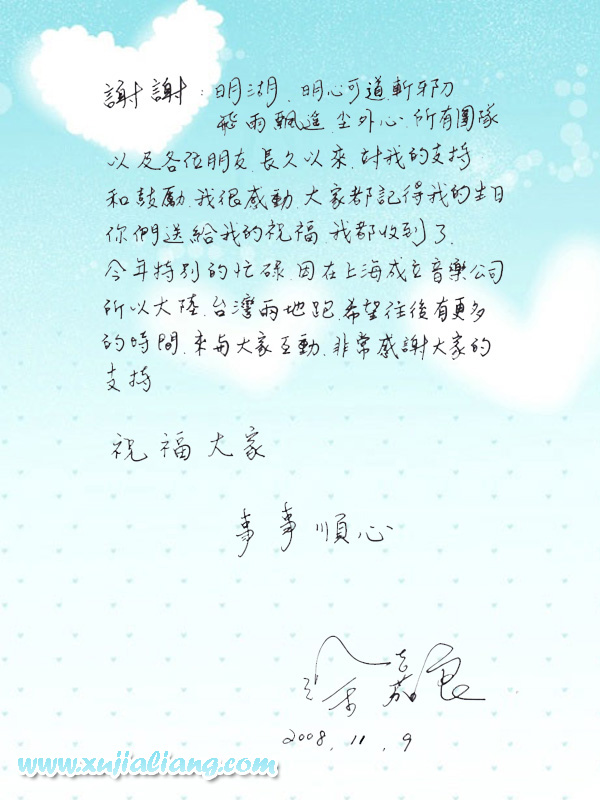 謝謝：明湖、明心可道、斬邪刀
飛雨飄進、尘外心、所有團隊
以及各位朋友、長久以來、對我的支持
和鼓勵、我很感動、大家都記得我的生日
你們送給我的祝福、我都收到了、
今年特別的忙碌、因在上海成立音樂公司
所以大陸、台灣兩地跑、希望往後有更多
的時間、來与大家互動、非常感謝大家的
支持
祝福大家
事事順心
徐嘉良
2008.11.9
www.xujialiang.com